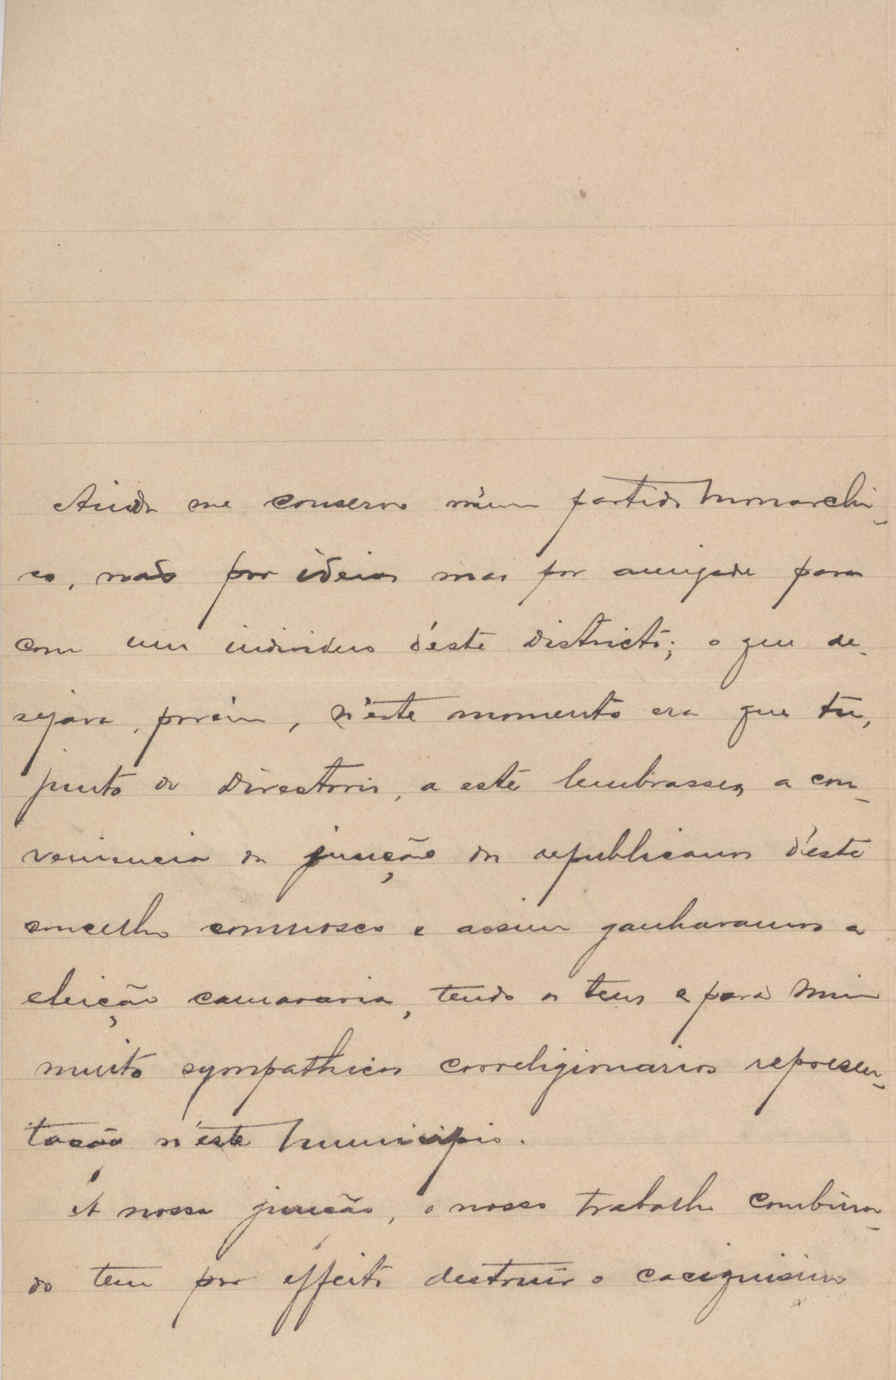 Ainda me conservo n'um partido monarchi-
co, não por ideias mas por amizade para
com um individuo d'este districto; o que de-
sejava, porém, n'este momento era que tu,
junto do Directorio, a este lembrasses a con-
veniencia da juncção dos republicanos d'este
concelho comnosco e assim ganharamos a
eleição camararia, tendo os teus e para mim
muito sympathicos correligionarios represen-
tação n'este municipio.
A nossa juncção, o nosso trabalho combina-
do tem por effeito destruir o caciquismo